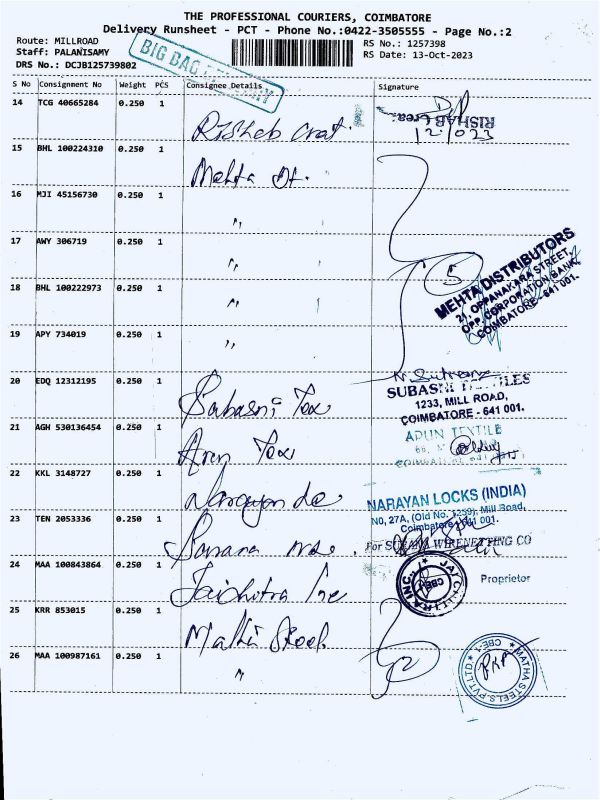 THE PROFESSIONAL COURIERS, COIMBATORE
Delivery Runsheet - PCT - Phone No.:0422-3505555 - Page No.:2
Route: MILLROAD
Staff: PALANISAMY
DRS No.: DCJB125739802
RS No.: 1257398
RS Date: 13-Oct-2023
BIG BAG
S No Consignment No Weight PCS Consignee Details Signature
14 TCG 40665284 0.250 1
RISHAB
15 BHL 100224310 0.250 1 Mehta
16 MJI 45156730 0.250 1 "
17 AWY 306719 0.250 1 "
18 BHL 100222973 0.250 1 "
5
MEHTA DISTRIBUTORS
21, OPPANAKARA STREET,
OPP. CORPORATION BANK,
COIMBATORE - 641 001.
19 APY 734019 0.250 1 "
20 EDQ 12312195 0.250 1 Subasni Tex
SUBASNI TEXTILES
1233, MILL ROAD,
COIMBATORE - 641 001.
21 AGH 530136454 0.250 1 Arun Tex
ARUN TEXTILE
22 KKL 3148727 0.250 1 Narayan
NARAYAN LOCKS (INDIA)
NO, 27A, (Old No. 1259), Mill Road,
Coimbatore - 641 001.
23 TEN 2053336 0.250 1
For WIRENETTING CO
Proprietor
24 MAA 100843864 0.250 1 Jaichitra Inc
JAICHITRA INC.
CBE-1
25 KRR 853015 0.250 1
2
26 MAA 100987161 0.250 1 "
MATHA STEELS PVT.LTD
CBE-1